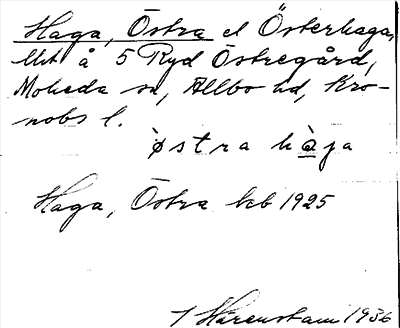 Haga, Östra el Österhaga,
lht å 5 Ryd Östregård,
Moheda sn, Allbo hd, Kro-
nobs l.
østra hàga
Haga, Östra kb 1925
1936